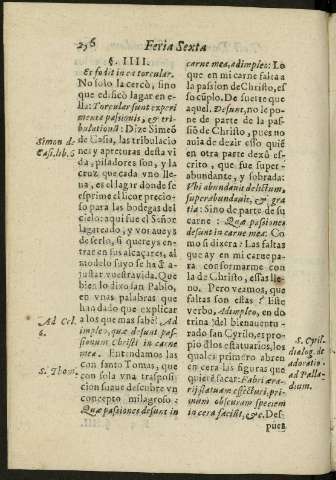 276
Feria Sexta
§. IIII.
Et fodit in ea torcular.
No solo la cercò, sino
que edificò lagar en e-
lla: Torcular sunt experi
menta passionis, & tri-
bulationis: Dize Simeõ
de Casia, las tribulacio
nes y apreturas desta vi
da, piladores son, y la
cruz, que cada vno lle-
ua, es el lagar donde se
exprime el licor precio-
so para las bodegas del
cielo: aqui fue el Señor
lagareado, y vos aueys
de serlo, si quereys en-
trar en sus alcaçares, al
modelo suyo se ha de a-
justar vuestra vida. Que
bien lo dixo san Pablo,
en vnas palabras que
han dado que explicar
a los que mas sabẽ: Ad
impleo, quæ desunt pas-
sionum Christi in carne
mea. Entendamos las
con santo Tomas, que
con sola vna trasposi-
cion suaue descubre vn
concepto milagroso:
Quæ passiones desunt in
Simon d.
Casi. lib. 5
Ad Col.
S. Thom.
carne mea, adimpleo: Lo
que en mi carne falta a
la passion de Christo, es
so cũplo. De suerte que
aquel. Desunt, no le po-
ne de parte de la pas-
siõ de Christo, pues no
auia de dezir esso quiẽ
en otra parte dexò es-
crito, que fue super-
abundante, y sobrada:
Vbi abundauit delictum,
superabundauit, & gra-
tia: Sino de parte de su
carne: Quæ passiones
desunt in carne mea: Co
mo si dixera: Las faltas
que ay en mi carne pa-
ra conformarme con
la de Christo, essas lle-
no. Pero veamos, que
faltas son essas? Este
verbo, Adimpleo, en do
trina del bienauentu-
rado san Cyrilo, es pro-
pio d los estatuarios, los
quales primero abren
en cera las figuras que
quierẽ sacar: Fabri æra-
rij statuam effecturi, pri-
mùm obscuram speciem
in cera faciũt, &c. Des-
pues
S. Cyril.
dialog. de
adoratio.
ad Palla-
dium.